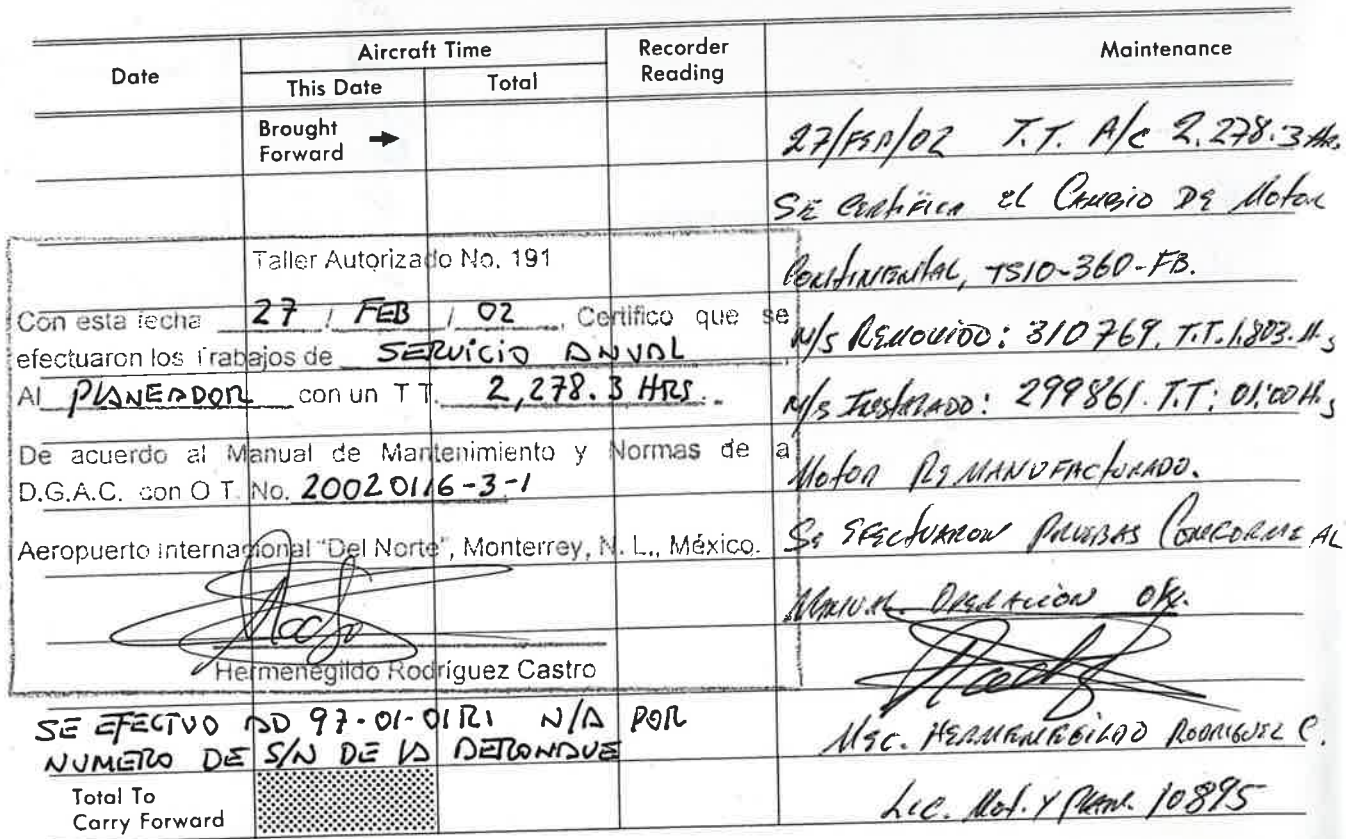 Date
Aircraft Time
This Date
Total
Recorder
Reading
Maintenance
Brought
Forward
Taller Autorizado No. 191
Con esta fecha 27 / FEB / 02, Certifico que se
efectuaron los Trabajos de SERVICIO ANUAL
Al PLANEADOR con un T T. 2,278.3 HRS.
De acuerdo al Manual de Mantenimiento y Normas de a
D.G.A.C. con O T. No. 20020116-3-1
Aeropuerto Internacional "Del Norte", Monterrey, N. L., México.
Hermenegildo Rodríguez Castro
SE EFECTUO AD 97-01-01R1 N/A POR
NUMERO DE S/N DE LA AERONAVE
Total To
Carry Forward
27/FEB/02 T.T. A/c 2,278.3 Hrs.
SE Certifica el Cambio DE Motor
Continental, TSIO-360-FB.
N/S Removido: 310769. T.T. 1,803. Hs
N/S Instalado: 299861. T.T: 01:00 Hs
Motor REMANUFACTURADO.
SE EFECTUARON PRUEBAS CONFORME AL
MANUAL. OPERACION OK.
Mec. HERMENEGILDO RODRIGUEZ C.
Lic. Mot. Y Plan. 10895